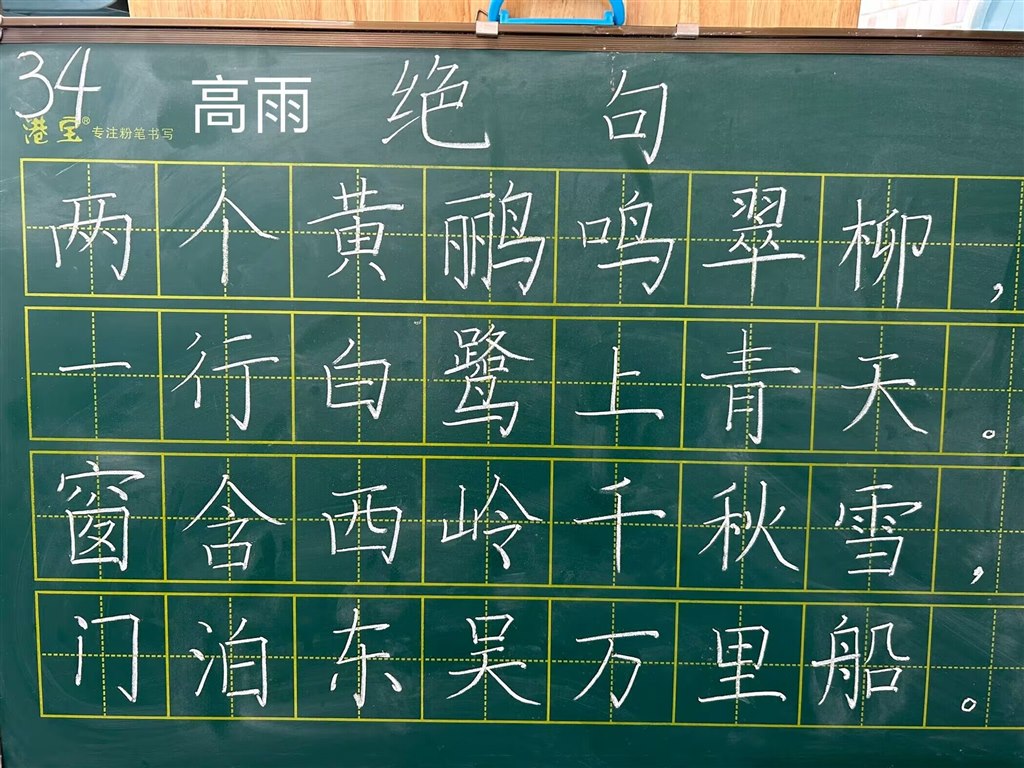 34 高雨 绝句
港宝® 专注粉笔书写
两个黄鹂鸣翠柳，
一行白鹭上青天。
窗含西岭千秋雪，
门泊东吴万里船。